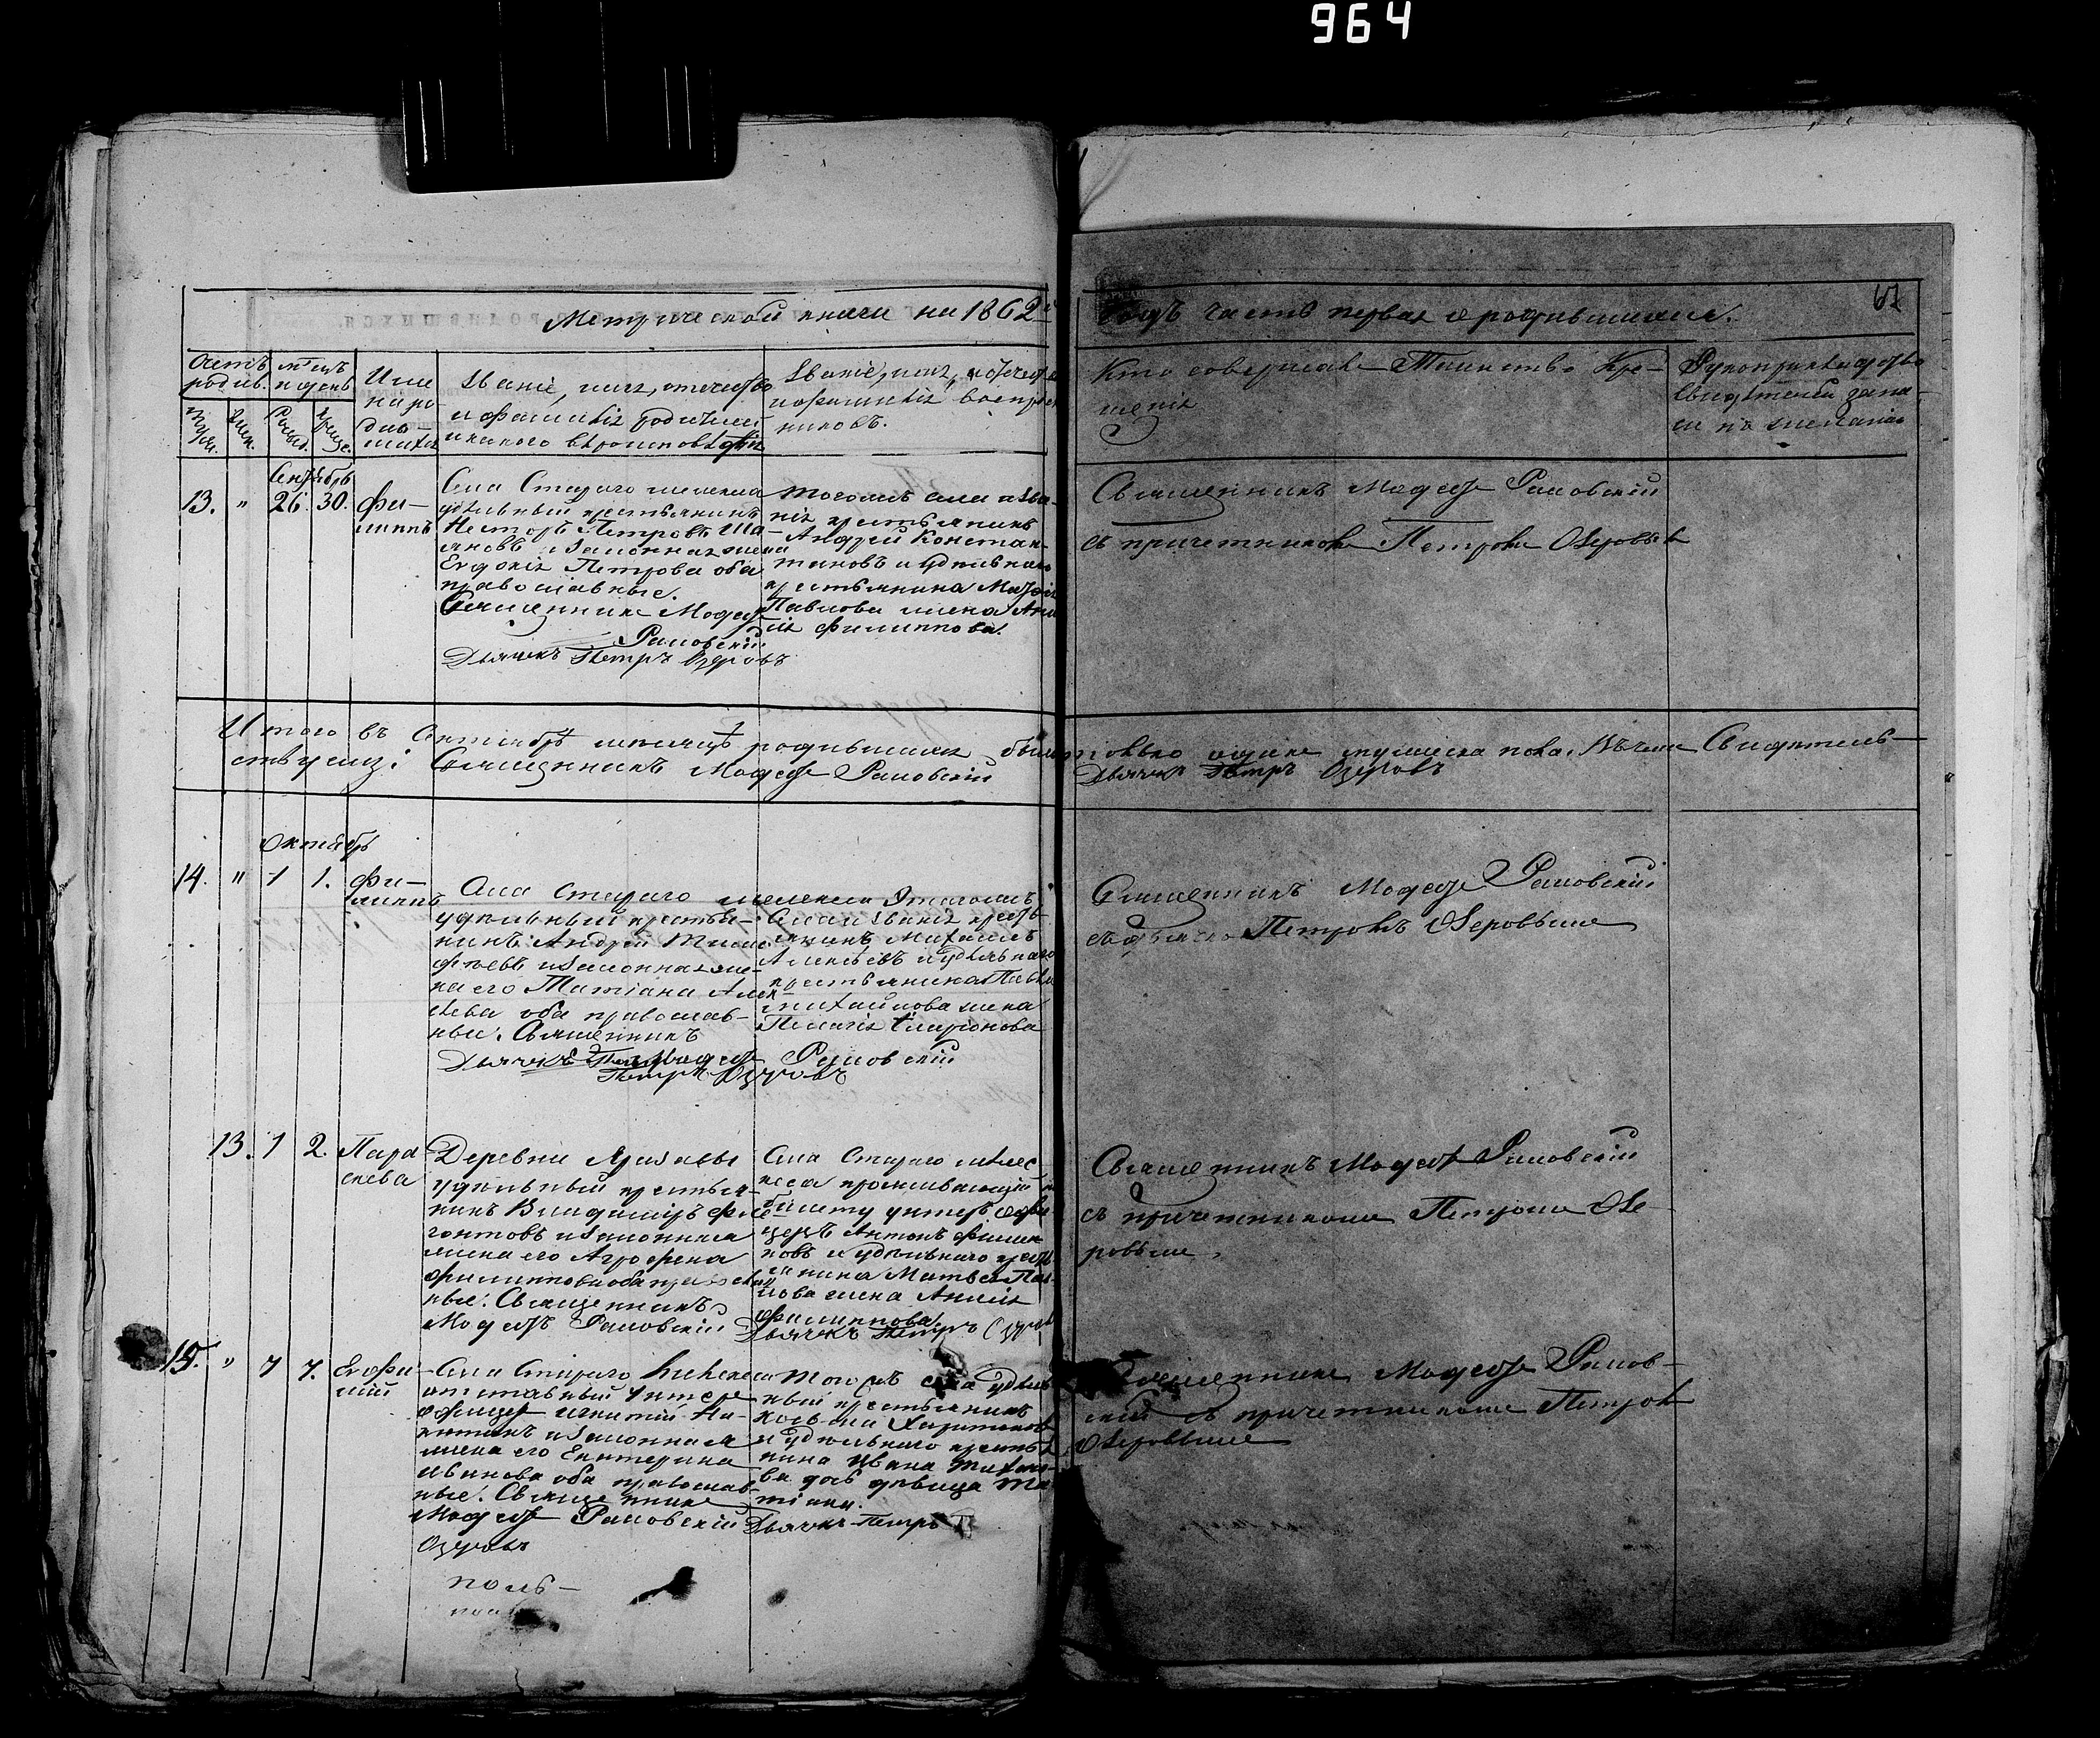 964
Метрической книги на 1862й
Годъ часть первая о родившихся.
67
Счетъ родив.
мѣсяцъ и день
Имя
на ро-
див-
шихся
Званіе, имя, отечество
и фамилія родителей
и какого вѣроисповѣданія
Званіе, имя, и отечество
и фамилія воспріем-
никовъ.
Кто совершалъ Таинство Кре-
щенія
Рукоприкладство
свидѣтелей запи-
си по желанію
Сентябрь
13. " 26. 30. Фи-
липпъ
Села Стараго
удѣльный крестьянинъ
Несторъ Петровъ Ша-
яновъ и законная жена
Евдокія Петрова оба
православные.
Священникъ Модестъ
Рамовскій
Дьячекъ Петръ Озеровъ
Тогожъ села и зва-
нія крестьянинъ
Андрей Констан-
тиновъ и удѣльнаго
крестьянина
Павлова жена
Филиппова.
Священникъ Модестъ Рамовскій
съ причетникомъ Петромъ Озеровымъ
Итого въ Сентябрѣ мѣсяцѣ родившихся было
только одинъ мужеска пола. Въ чемъ Свидѣтель-
ствуемъ: Священникъ Модестъ Рамовскій
Дьячекъ Петръ Озеровъ
Октябрь
14. " 1 1. Фи-
липпъ
Села Стараго
удѣльный крестья-
нинъ Андрей Тимо-
феевъ и законная же-
на его Татіана Алек-
сѣева оба православ-
ные. Священникъ
Модестъ Рамовскій
Дьячекъ
Петръ Озеровъ
Этогожъ
села и званія кресть-
янинъ Михаилъ
Алексѣевъ и удѣльнаго
крестьянина Павла
Михайлова жена
Пелагія
Священникъ Модестъ Рамовскій
съ дьячкомъ Петромъ Озеровымъ
13. 1 2. Пара
скева
Деревни
удѣльный крестья-
нинъ Владиміръ
и законная
жена его Агрофена
Филиппова оба православ-
ные. Священникъ
Модестъ Рамовскій
Села Стараго
проживающій по
билету унтеръ офи-
церъ Антонъ Филип-
повъ и удѣльнаго кресть-
янина Матвея Пав-
лова жена
Филиппова.
Дьячекъ Петръ Озеровъ
Священникъ Модестъ Рамовскій
съ причетникомъ Петромъ Озе-
ровымъ.
15. " 7 7. Евфи-
мій
Села Стараго
отставный Унтеръ
офицеръ Игнатій Ни-
китинъ и законная
жена его Екатерина
Иванова оба православ-
ные. Священникъ
Модестъ Рамовскій
Озеровъ
Тогожъ села удѣль-
ный крестьянинъ
Косьма Харитоновъ
и удѣльнаго крестья-
нина Ивана Михайло-
ва дочь дѣвица Та-
тіана.
Дьячекъ Петръ
Священникъ Модестъ Рамов-
скій съ причетникомъ Петромъ
Озеровымъ